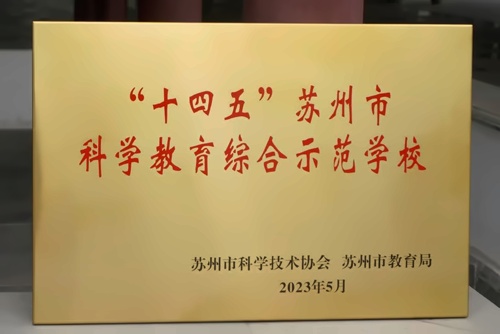 “十四五”苏州市
科学教育综合示范学校
苏州市科学技术协会 苏州市教育局
2023年5月